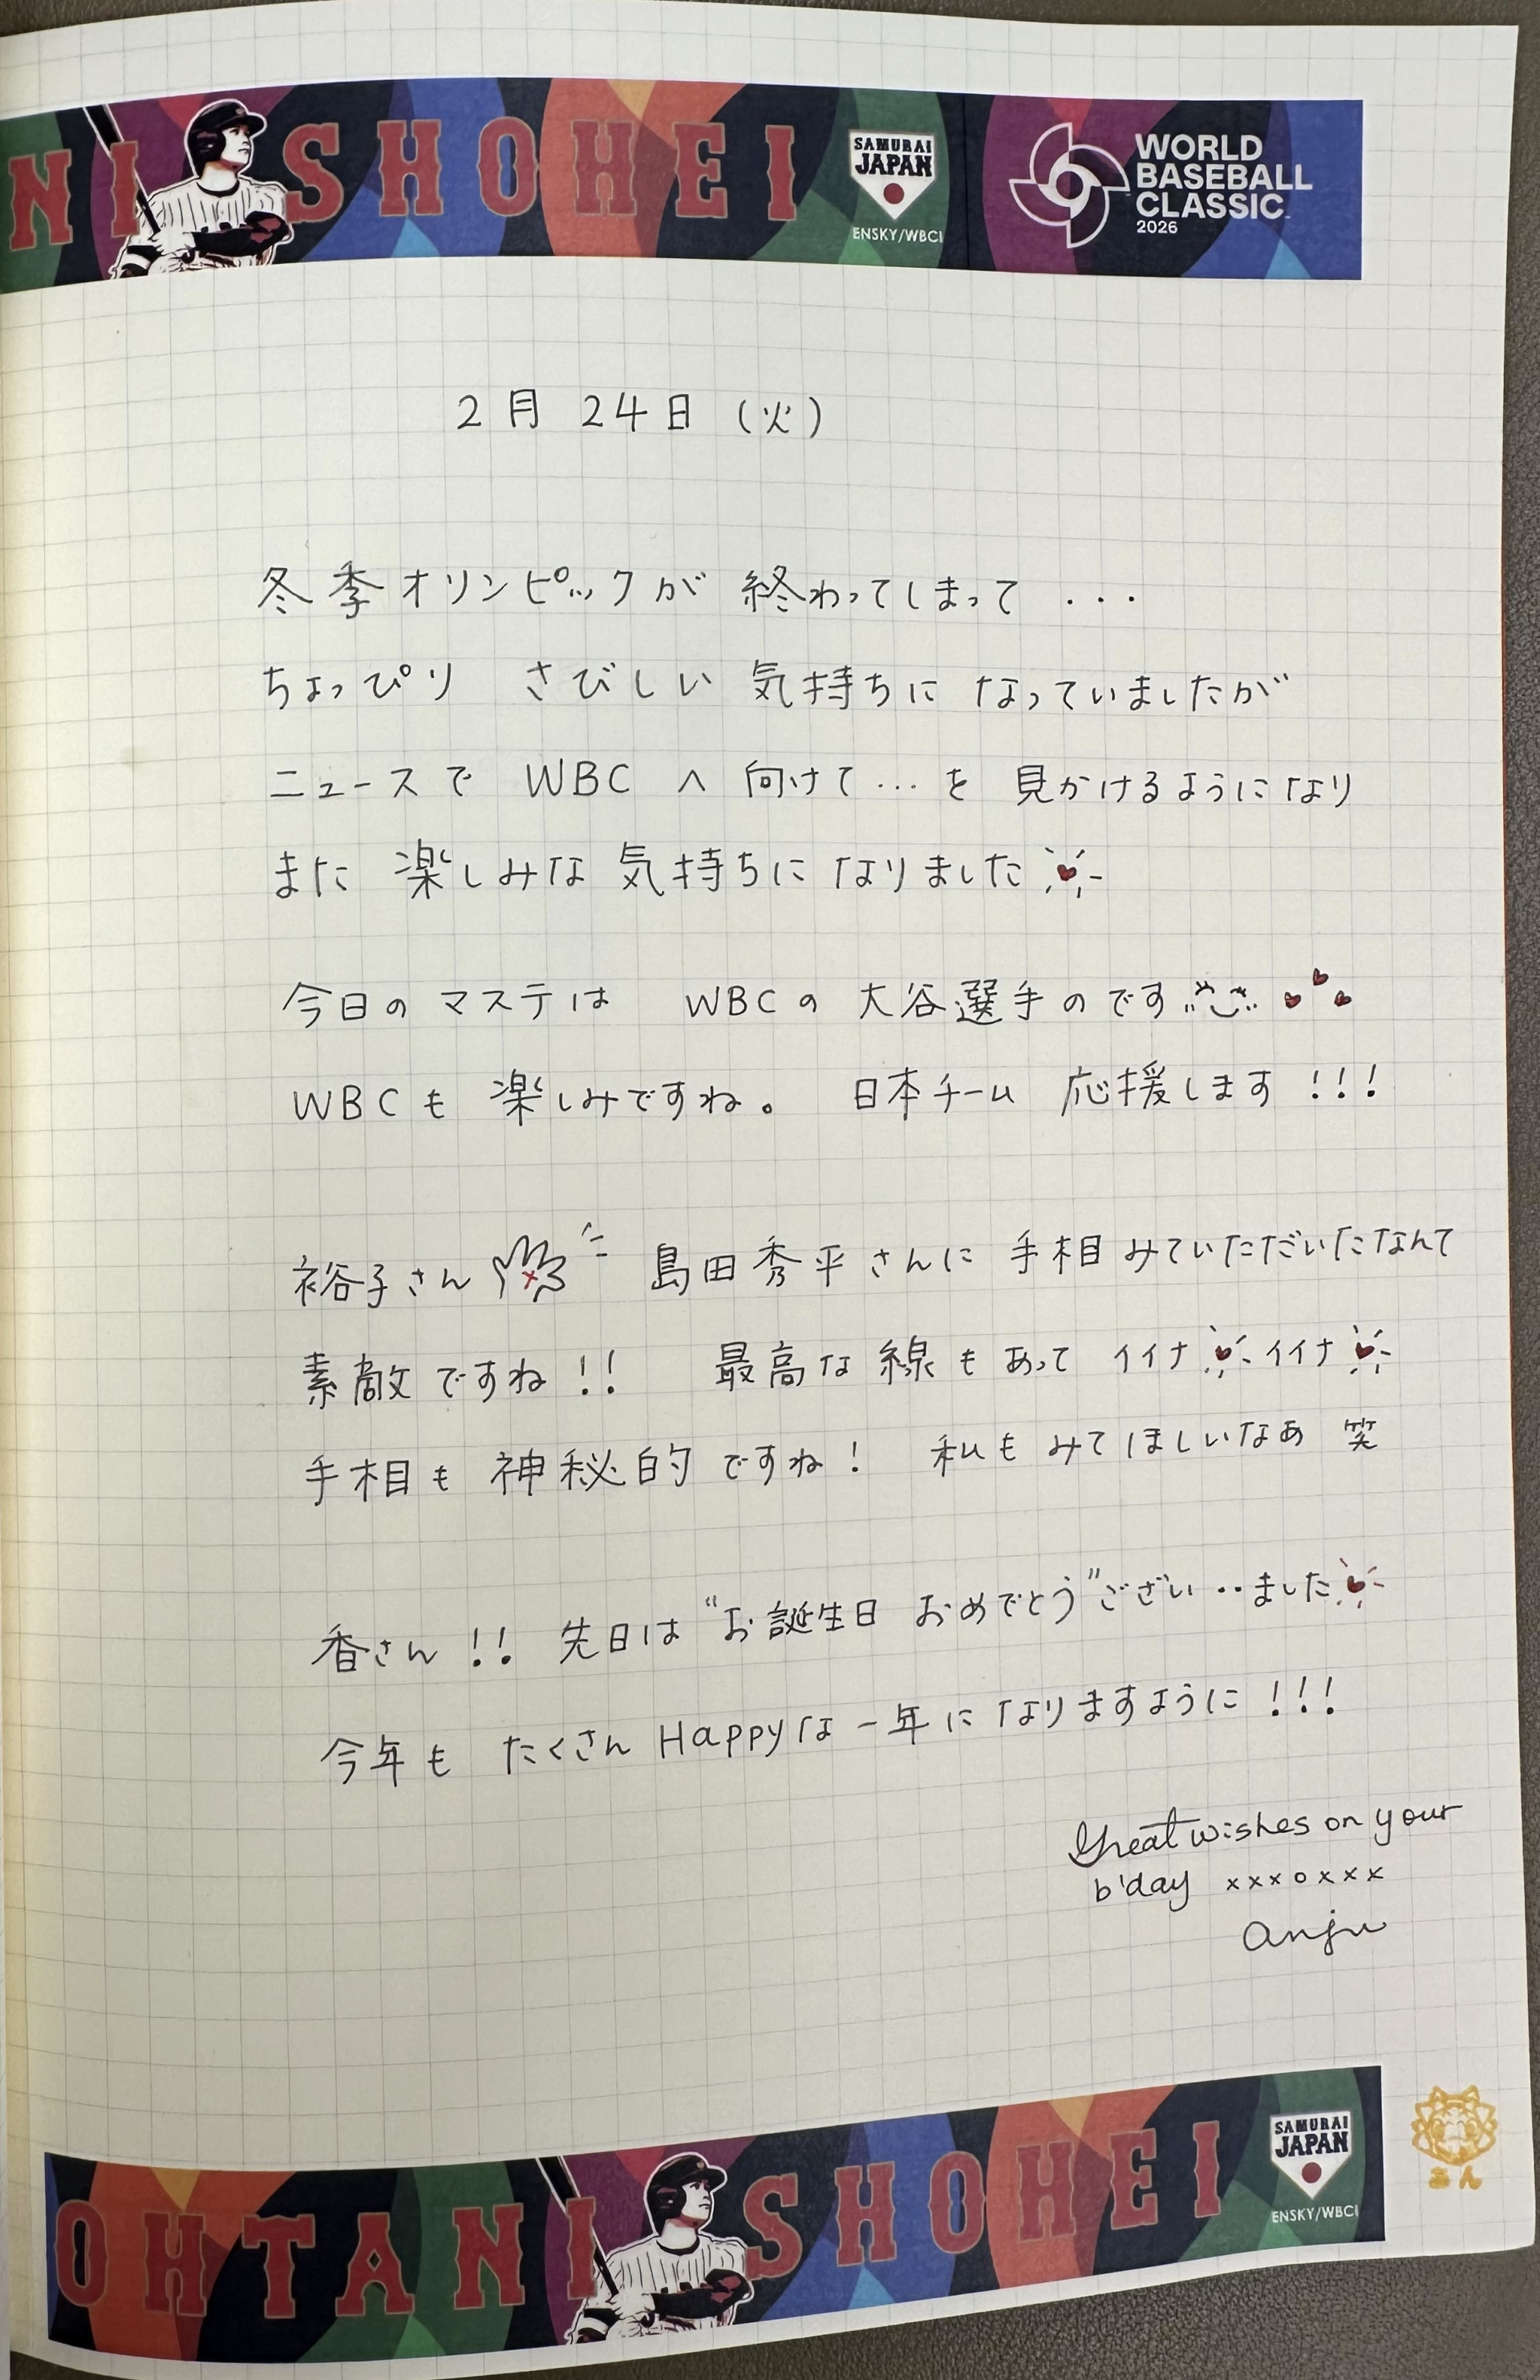 NI SHOHEI
SAMURAI
JAPAN
ENSKY/WBCI
WORLD
BASEBALL
CLASSIC
2026
2月 24日 (火)
冬季オリンピックが 終わってしまって ・・・
ちょっぴり さびしい 気持ちに なっていましたが
ニュースで WBC へ 向けて…を 見かけるようになり
また 楽しみな 気持ちに なりました
今日の マステは WBCの 大谷選手のです
WBCも 楽しみですね。 日本チーム 応援します!!!
裕子さん 島田秀平さんに 手相 みていただいたなんて
素敵ですね!! 最高な 線もあって イイナ イイナ
手相も 神秘的ですね! 私も みてほしいなぁ 笑
香さん!! 先日は “お誕生日 おめでとう”ござい‥ました
今年も たくさん Happyな 一年に なりますように!!!
Great wishes on your
b'day xxxoxxx
anju
OHTANI SHOHEI
SAMURAI
JAPAN
ENSKY/WBCI